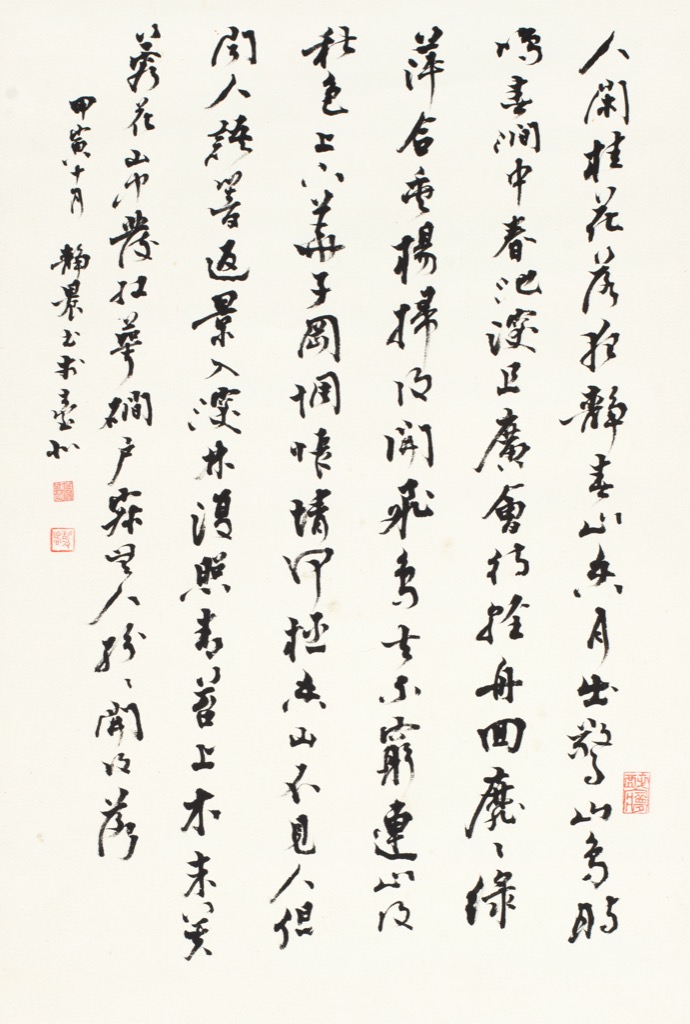 人閑桂花落夜靜春山空月出驚山鳥時
鳴春澗中春池深且廣會待輕舟回靡〻綠
萍合垂楊掃復開飛鳥去不窮連山復
秋色上下華子岡惆悵情何極空山不見人但
聞人語響返景入深林復照青苔上木末芙
蓉花山中發紅萼磵戶寂無人紛〻開復落
甲寅十月 靜農書於臺北